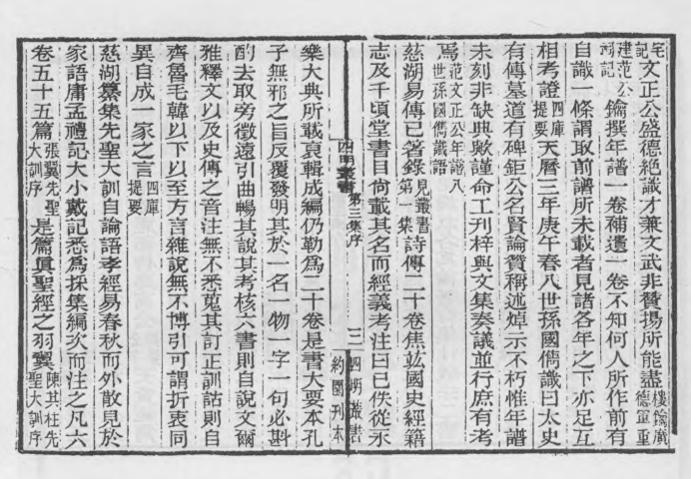 宅記文正公盛德絕識才兼文武非贊揚所能盡樓鑰廣德軍重
建范公祠記鑰撰年譜一卷補遺一卷不知何人所作前有
自識一條謂取前譜所未載者見諸各年之下亦足互
相考證四庫提要天曆三年庚午春八世孫國儁識曰太史
有傳墓道有碑鉅公名賢論贊稱述焯示不朽惟年譜
未刻非缺典歟謹命工刊梓與文集奏議並行庶有考
焉范文正公年譜八世孫國儁識語
慈湖易傳已著錄見叢書第一集詩傳二十卷焦竑國史經籍
志及千頃堂書目尙載其名而經義考注曰已佚從永
四明叢書 第三集序 三 四明叢書 約園刊本
樂大典所載裒輯成編仍勒爲二十卷是書大要本孔
子無邪之旨反覆發明其於一名一物一字一句必斟
酌去取旁徵遠引曲暢其說其考核六書則自說文爾
雅釋文以及史傳之音注無不悉蒐其訂正訓詁則自
齊魯毛韓以下以至方言雜說無不博引可謂折衷同
異自成一家之言四庫提要
慈湖纂集先聖大訓自論語孝經易春秋而外散見於
家語庸孟禮記大小戴記悉爲採集編次而注之凡六
卷五十五篇張翼先聖大訓序是篇眞聖經之羽翼陳其柱先聖大訓序